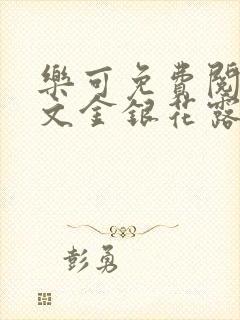 樂可免費閱
文金銀花露
彭勇